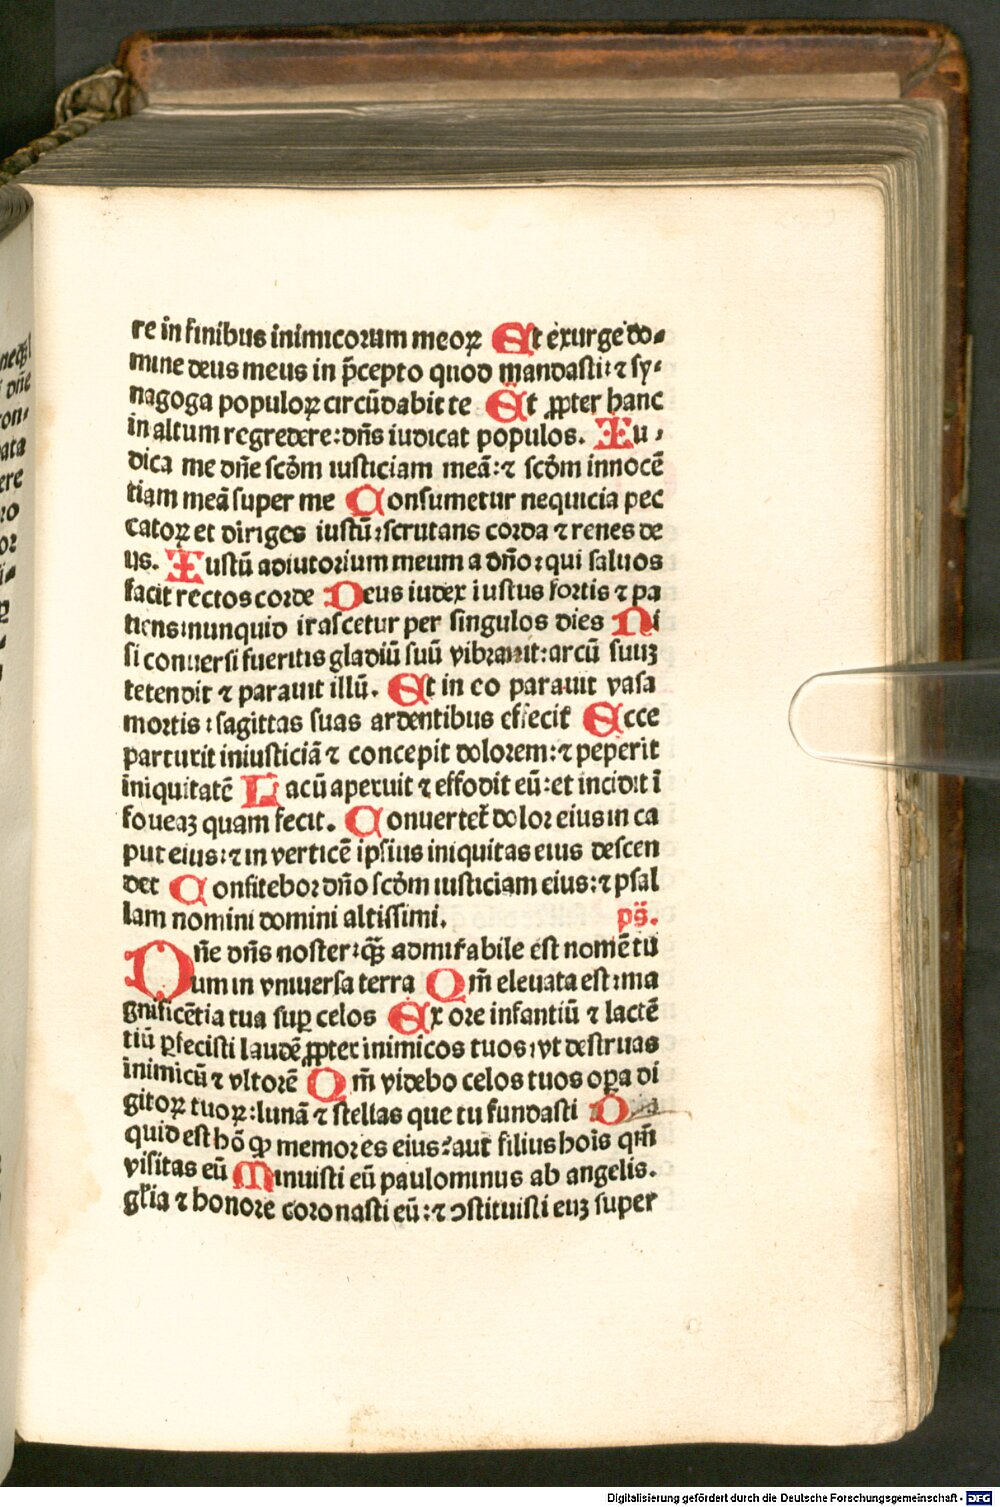 re in finibus inimicorum meoꝝ Et exurge do⸗
mine deus meus in p̄cepto quod mandasti: ⁊ sy⸗
nagoga populoꝝ circūdabit te Et ꝓpter hanc
in altum regredere: dn̄s iudicat populos. Iu⸗
dica me dn̄e scd̄m iusticiam meā: ⁊ scd̄m innocē
tiam meā super me Consumetur nequicia pec
catoꝝ et diriges iustū: scrutans corda ⁊ renes de
us. Iustū adiutorium meum a dn̄o: qui saluos
facit rectos corde Deus iudex iustus fortis ⁊ pa
tiens: nunquid irascetur per singulos dies Ni
si conuersi fueritis gladiū suū vibrauit: arcū suuꝫ
tetendit ⁊ parauit illū. Et in eo parauit vasa
mortis: sagittas suas ardentibus effecit Ecce
parturit iniusticiā ⁊ concepit dolorem: ⁊ peperit
iniquitatē Lacū aperuit ⁊ effodit eū: et incidit ī
foueaꝫ quam fecit. Conuertet̄ dolor eius in ca
put eius: ⁊ in verticē ipsius iniquitas eius descen
det Confitebor dn̄o scd̄m iusticiam eius: ⁊ psal
lam nomini domini altissimi. ps̄.
Dn̄e dn̄s noster: qȝ̄ admirabile est nomē tu
um in vniuersa terra Qm̄ eleuata est: ma
gnificētia tua suꝑ celos Ex ore infantiū ⁊ lactē
tiū ꝑfecisti laudē ꝓpter inimicos tuos: vt destruas
inimicū ⁊ vltorē Qm̄ videbo celos tuos oꝑa di
gitoꝝ tuoꝝ: lunā ⁊ stellas que tu fundasti
quid est hō ꝙ memores eius: aut filius hoīs qm̄
visitas eū Minuisti eū paulominus ab angelis.
gl̄ia ⁊ honore coronasti eū: ⁊ ↄstituisti euꝫ super
Digitalisierung gefördert durch die Deutsche Forschungsgemeinschaft - DFG